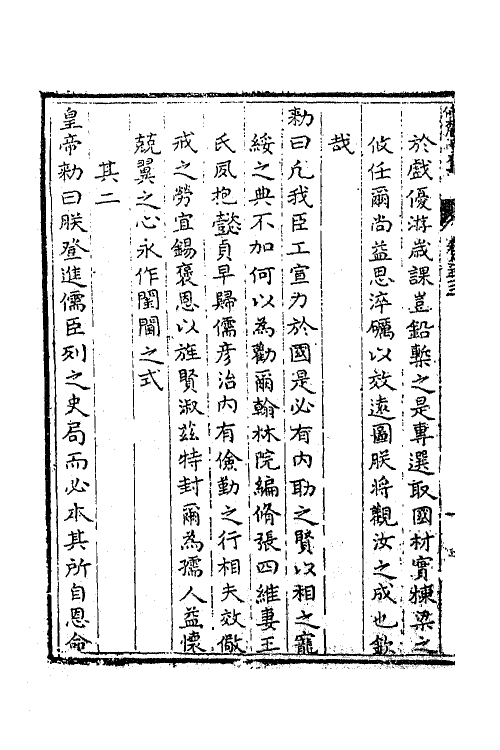 於戲優游歳課豈鉛槧之是專選取國材實棟梁之
攸任爾尚益思淬礪以效遠圖朕將觀汝之成也欽
哉
勑曰凢我臣工宣力於國是必有内助之賢以相之寵
綏之典不加何以為勸爾翰林院編脩張四維妻王
氏夙抱懿貞早歸儒彦治内有儉勤之行相夫效儆
戒之勞宜錫褒恩以旌賢淑兹特封爾為孺人益懷
兢翼之心永作閨閫之式
其二
皇帝勑曰朕登進儒臣列之史局而必本其所自恩命